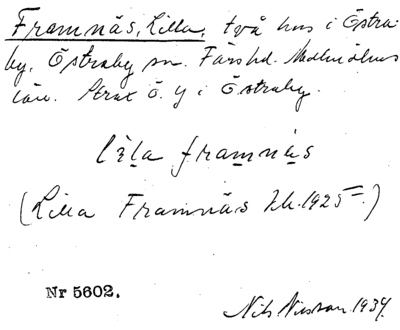 Framnäs, Lilla, två hus i Östra-
by, Östraby sn. Färs hd. Malmöhus
län. Strax ö. y i Östraby.
lìl̠a fram̠nä̠s
(Lilla Framnäs Jb. 1925 .)
Nr 5602.
Nils Nilsson. 1934.